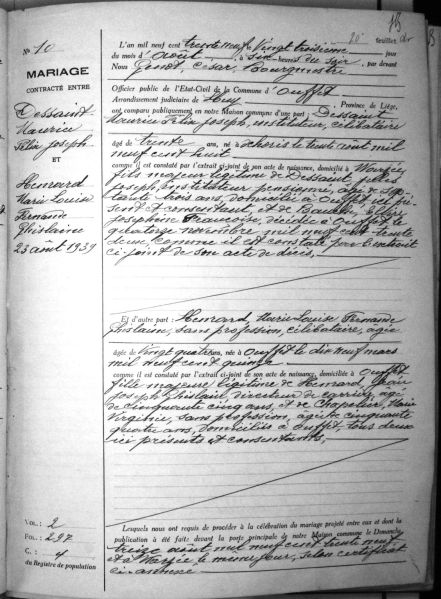 20e feuillet
N° 10
MARIAGE
CONTRACTÉ ENTRE
Dessaint
Maurice
Félix Joseph
ET
Hemrard
Marie Louise
Fernande
Ghislaine
23 août 1939
VOL.: 2
FOL.: 297
C.: 4
du Registre de population
L'an mil neuf cent trente neuf, Vingt troisième jour
du mois d'Août, à six heures du soir, par devant
Nous Genot, César, Bourgmestre
Officier public de l'Etat-Civil de la Commune d'Ouffet
Arrondissement judiciaire de Huy Province de Liége,
ont comparu publiquement en notre Maison commune d'une part: Dessaint
Maurice Félix Joseph, instituteur, célibataire
âgé de trente ans, né à le trente août mil
neuf cent huit
comme il est constaté par l'extrait ci-joint de son acte de naissance, domicilié à Warzée
fils majeur légitime de Dessaint,
Joseph, instituteur pensionné, âgé de
trois ans, domicilié à Ouffet, ici pré
sent et consentant, et de
Josephine Françoise, décédée à Ouffet le
quatorze novembre mil neuf cent trente
deux, comme il est constaté par l'extrait
ci-joint de son acte de décès.
Et d'autre part: Hemrard, Marie Louise Fernande
Ghislaine, sans profession, célibataire, âgée
âgée de Vingt quatre ans, née à Ouffet le dix neuf mars
mil neuf cent quinze
comme il est constaté par l'extrait ci-joint de son acte de naissance, domiciliée à Ouffet
fille majeure légitime de Hemrard,
Joseph Ghislain, directeur de carrière, âgé
de cinquante cinq ans, et de Marie
Virginie, sans profession, âgée de cinquante
quatre ans, domiciliés à Ouffet, tous deux
ici présents et consentants.
Lesquels nous ont requis de procéder à la célébration du mariage projeté entre eux et dont la
publication a été faite devant la porte principale de notre Maison commune le Dimanche
treize août mil neuf cent trente neuf
et à Warzée le même jour, selon certificat
ci-annexé